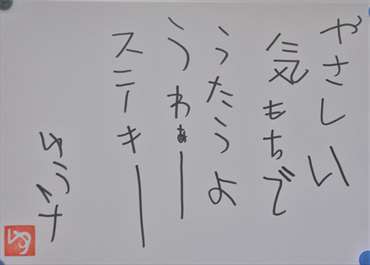 やさしい
気もちで
うたうよ
うわぁー
ステキー
ゆうすけ
ゆ